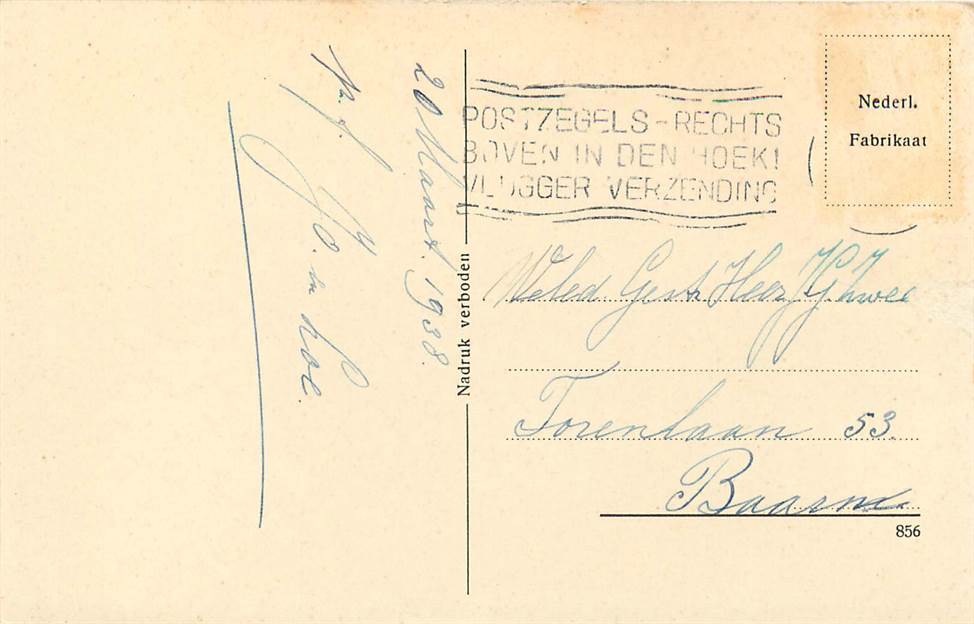 20 Maart. 1938.
p. f.
Jo. en Loe.
Nadruk verboden
POSTZEGELS-RECHTS
BOVEN IN DEN HOEK!
VLUGGER VERZENDING
Nederl.
Fabrikaat
Weled Gestr Heer
Torenlaan 53.
Baarn
856